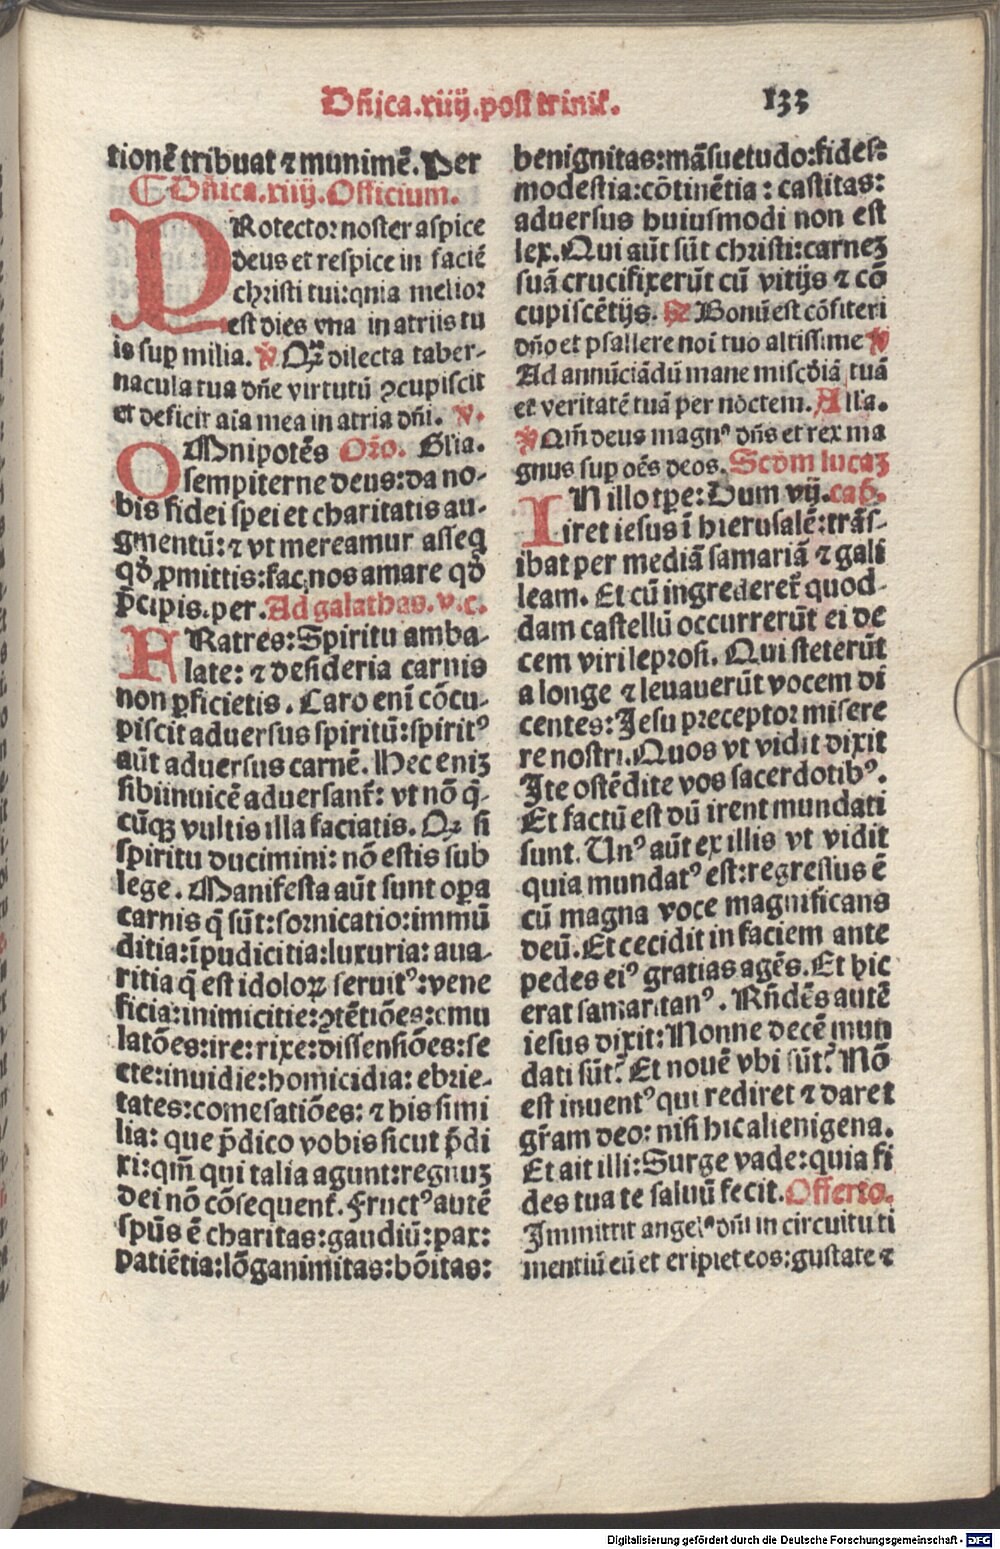 Dñica.xiiij.post trinit̃.
133
tionẽ tribuat ⁊ munimẽ. Per
¶ Dñica.xiiij. Officium.
PRotector noster aspice
deus et respice in faciẽ
christi tui: qnia melior
est dies vna in atriis tu
is suꝑ milia. ℣ Qꝫ dilecta taber-
nacula tua dñe virtutũ ꝯcupiscit
et deficit aĩa mea in atria dñi. ℣.
OMnipotẽs Orõ. Glĩa.
sempiterne deus: da no-
bis fidei spei et charitatis au-
gmentũ: ⁊ vt mereamur asseq
qḋ ꝓmittis: fac nos amare qḋ
p̃cipis. per. Ad galathas. v. c.
FRatres: Spiritu amba-
late: ⁊ desideria carnis
non ꝑficietis. Caro enĩ cõcu-
piscit aduersus spiritũ: spiritꝰ
aũt aduersus carnẽ. Hec eniꝫ
sibiinuicẽ aduersant̃: vt nõ q̃-
cũqꝫ vultis illa faciatis. Qꝫ si
spiritu ducimini: nõ estis sub
lege. Manifesta aũt sunt oꝑa
carnis q̃ sũt: fornicatio: immũ
ditia: ĩpudicitia: luxuria: aua-
ritia q̃ est idoloꝝ seruitꝰ: vene
ficia: inimicitie: ꝯtẽtiões: emu
latões: ire: rixe: dissensiões: se
cte: inuidie: homicidia: ebrie-
tates: comesatiões: ⁊ his simi
lia: que p̃dico vobis sicut p̃di
xi: qm̃ qui talia agunt: regnuꝫ
dei nõ cõsequent̃. Fructꝰ autẽ
spũs ẽ charitas: gaudiũ: pax:
patiẽtia: lõganimitas: bõitas:
benignitas: mãsuetudo: fides:
modestia: cõtinẽtia: castitas:
aduersus huiusmodi non est
lex. Qui aũt sũt christi: carneꝫ
suã crucifixerũt cũ vitijs ⁊ cõ
cupiscẽtijs. ℟ Bonũ est cõfiteri
dño et psallere noĩ tuo altissime ℣
Ad annũciãdũ mane misc̃diã tuã
et veritatẽ tuã per noctem. Allã.
℣ Qm̃ deus magnꝰ dñs et rex ma
gnus suꝑ oẽs deos. Scḋm lucaꝫ
IN illo tp̃e: Dum vij. cap̃.
iret iesus ĩ hierusalẽ: trãs-
ibat per mediã samariã ⁊ gali
leam. Et cũ ingrederet̃ quod-
dam castellũ occurrerũt ei de
cem viri leprosi. Qui steterũt
a longe ⁊ leuauerũt vocem di
centes: Jesu preceptor misere
re nostri. Quos vt vidit dixit
Ite ostẽdite vos sacerdotibꝰ.
Et factũ est dũ irent mundati
sunt. Unꝰ aũt ex illis vt vidit
quia mundatꝰ est: regressus ẽ
cũ magna voce magnificans
deũ. Et cecidit in faciem ante
pedes eiꝰ gratias agẽs. Et hic
erat samaritanꝰ. Rñdẽs autẽ
iesus dixit: Nonne decẽ mun
dati sũt? Et nouẽ vbi sũt? Nõ
est inuentꝰ qui rediret ⁊ daret
gr̃am deo: nisi hic alienigena.
Et ait illi: Surge vade: quia fi
des tua te saluũ fecit. Offerto.
Immittit angelꝰ dñi in circuitu ti
mentiũ eũ et eripiet eos: gustate ⁊
Digitalisierung gefördert durch die Deutsche Forschungsgemeinschaft - DFG